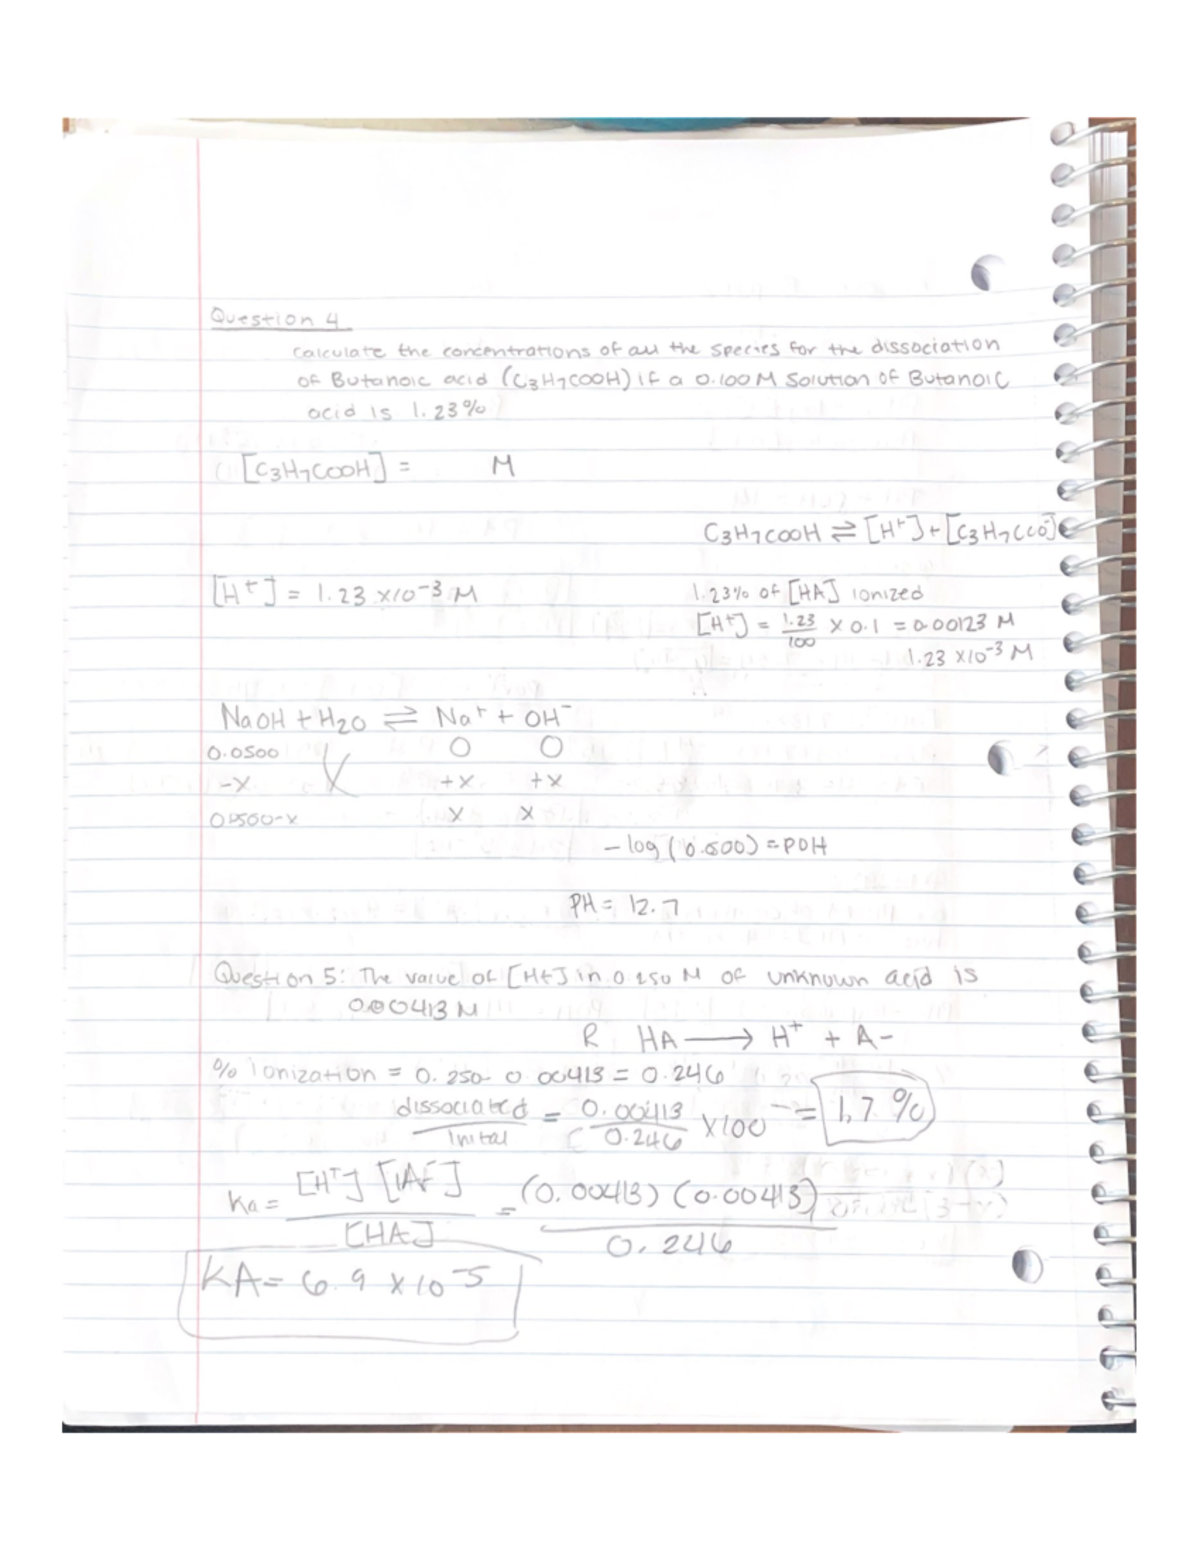 Question 4
Calculate the concentrations of all the species for the dissociation
of Butanoic acid (C3H7COOH) if a 0.100 M solution of Butanoic
acid is 1.23%
[C3H7COOH] = M
C3H7COOH ⇌ [H+] + [C3H7COO-]
[H+] = 1.23 x10-3 M
1.23% of [HA] ionized
[H+] = 1.23/100 x 0.1 = 0.00123 M
1.23 x10-3 M
NaOH + H2O ⇌ Na+ + OH-
0.0500 0 0
-x +x +x
0.0500-x x x
-log (0.0500) = POH
PH = 12.7
Question 5: The value of [H+] in 0.250 M of unknown acid is
0.00413 M
R HA → H+ + A-
% Ionization = 0.250 - 0.00413 = 0.246
dissociated/Inital = 0.00413/0.246 x100 = 1.7 %
Ka = [H+] [A-]/[HA] = (0.00413) (0.00413)/0.246
KA = 6.9 x 10-5